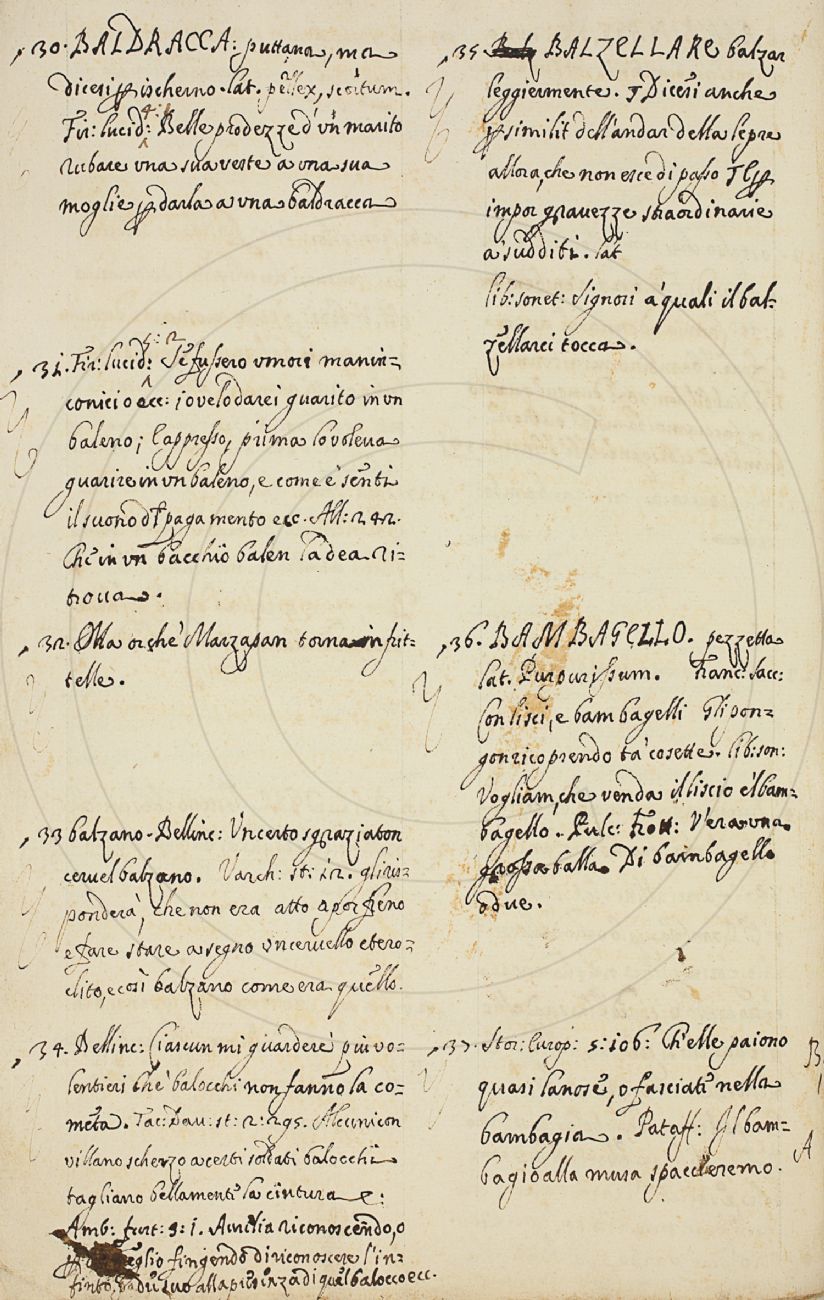 30. BALDRACCA: puttana, ma
dicesi p ischerno. lat. pellex, scortum.
4: 1
Fir: lucid: Belle prodezze d'un marito
rubare vna sua veste a vna sua
moglie p darla a vna baldracca
5: 2
31. Fir: lucid: Se fussero vmori manin=
conici o ecc: io ve lo darei guarito in vn
baleno; E appresso, prima lo voleua
guarire in vn baleno, e come e' sentì
il suono di pagamento ecc. All: 242.
Che in vn bacchio balen la dea ri=
troua.
32. Olla orché Marzapan torna in frit=
telle.
33 balzano. Bellinc: Vn certo sgraziaton
ceruel balzano. Varch: st: 12. gli ris=
ponderà, che non era atto a por freno
e fare stare a segno vn ceruello etero=
clito, e così balzano come era quello.
34. Bellinc: Ciascun mi guardere' più vo=
lentieri Che balocchi non fanno la co=
meta. Tac: Dau: st: 2: 295. Alcuni con
villano scherzo a certi soldati balocchi
tagliano bellamente la cintura e:
Amb: furt: 3: 1. riconoscendo, o
p meglio fingendo di riconoscere l'in=
alla presenza di quel balocco ecc.
35 BALZELLARE balzar
leggiermente. ¶ Dicesi anche
p similit dell'andar della lepre
allora, che non esce di passo ¶ E p
impor grauezze straordinarie
a' sudditi. lat
lib: sonet: Signori a' quali il bal=
zellarci tocca.
36. BAMBAGELLO. pezzetta
lat. Purpurissum. Franc: Sacc:
Con lisci, e bambagelli
gon ricoprendo ta' cosette. lib: son:
Vogliam, che venda il liscio e 'l bam=
bagello. Pulc: Frott: V'era vna
grossa balla Di bambagello
o due.
37. Stor: Europ: 5: 106: Ch'elle paiono
quasi lanose, o fasciate nella
bambagia. Pataff: Il bam=
bagio alla musa spaccieremo.
B
A